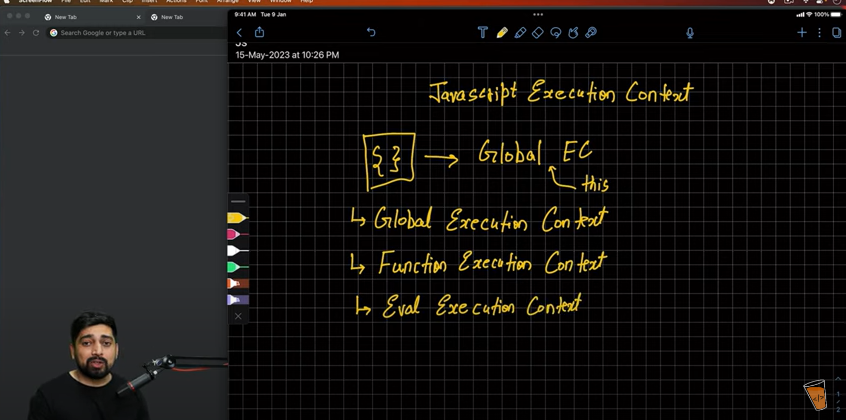 ScreenFlow File Edit View Mark Clip Insert Actions Font Arrange View Window Help
New Tab
New Tab
Search Google or type a URL
9:41 AM Tue 9 Jan
100%
JS
15-May-2023 at 10:26 PM
Javascript Execution Context
{ } → Global EC
this
↳ Global Execution Context
↳ Function Execution Context
↳ Eval Execution Context